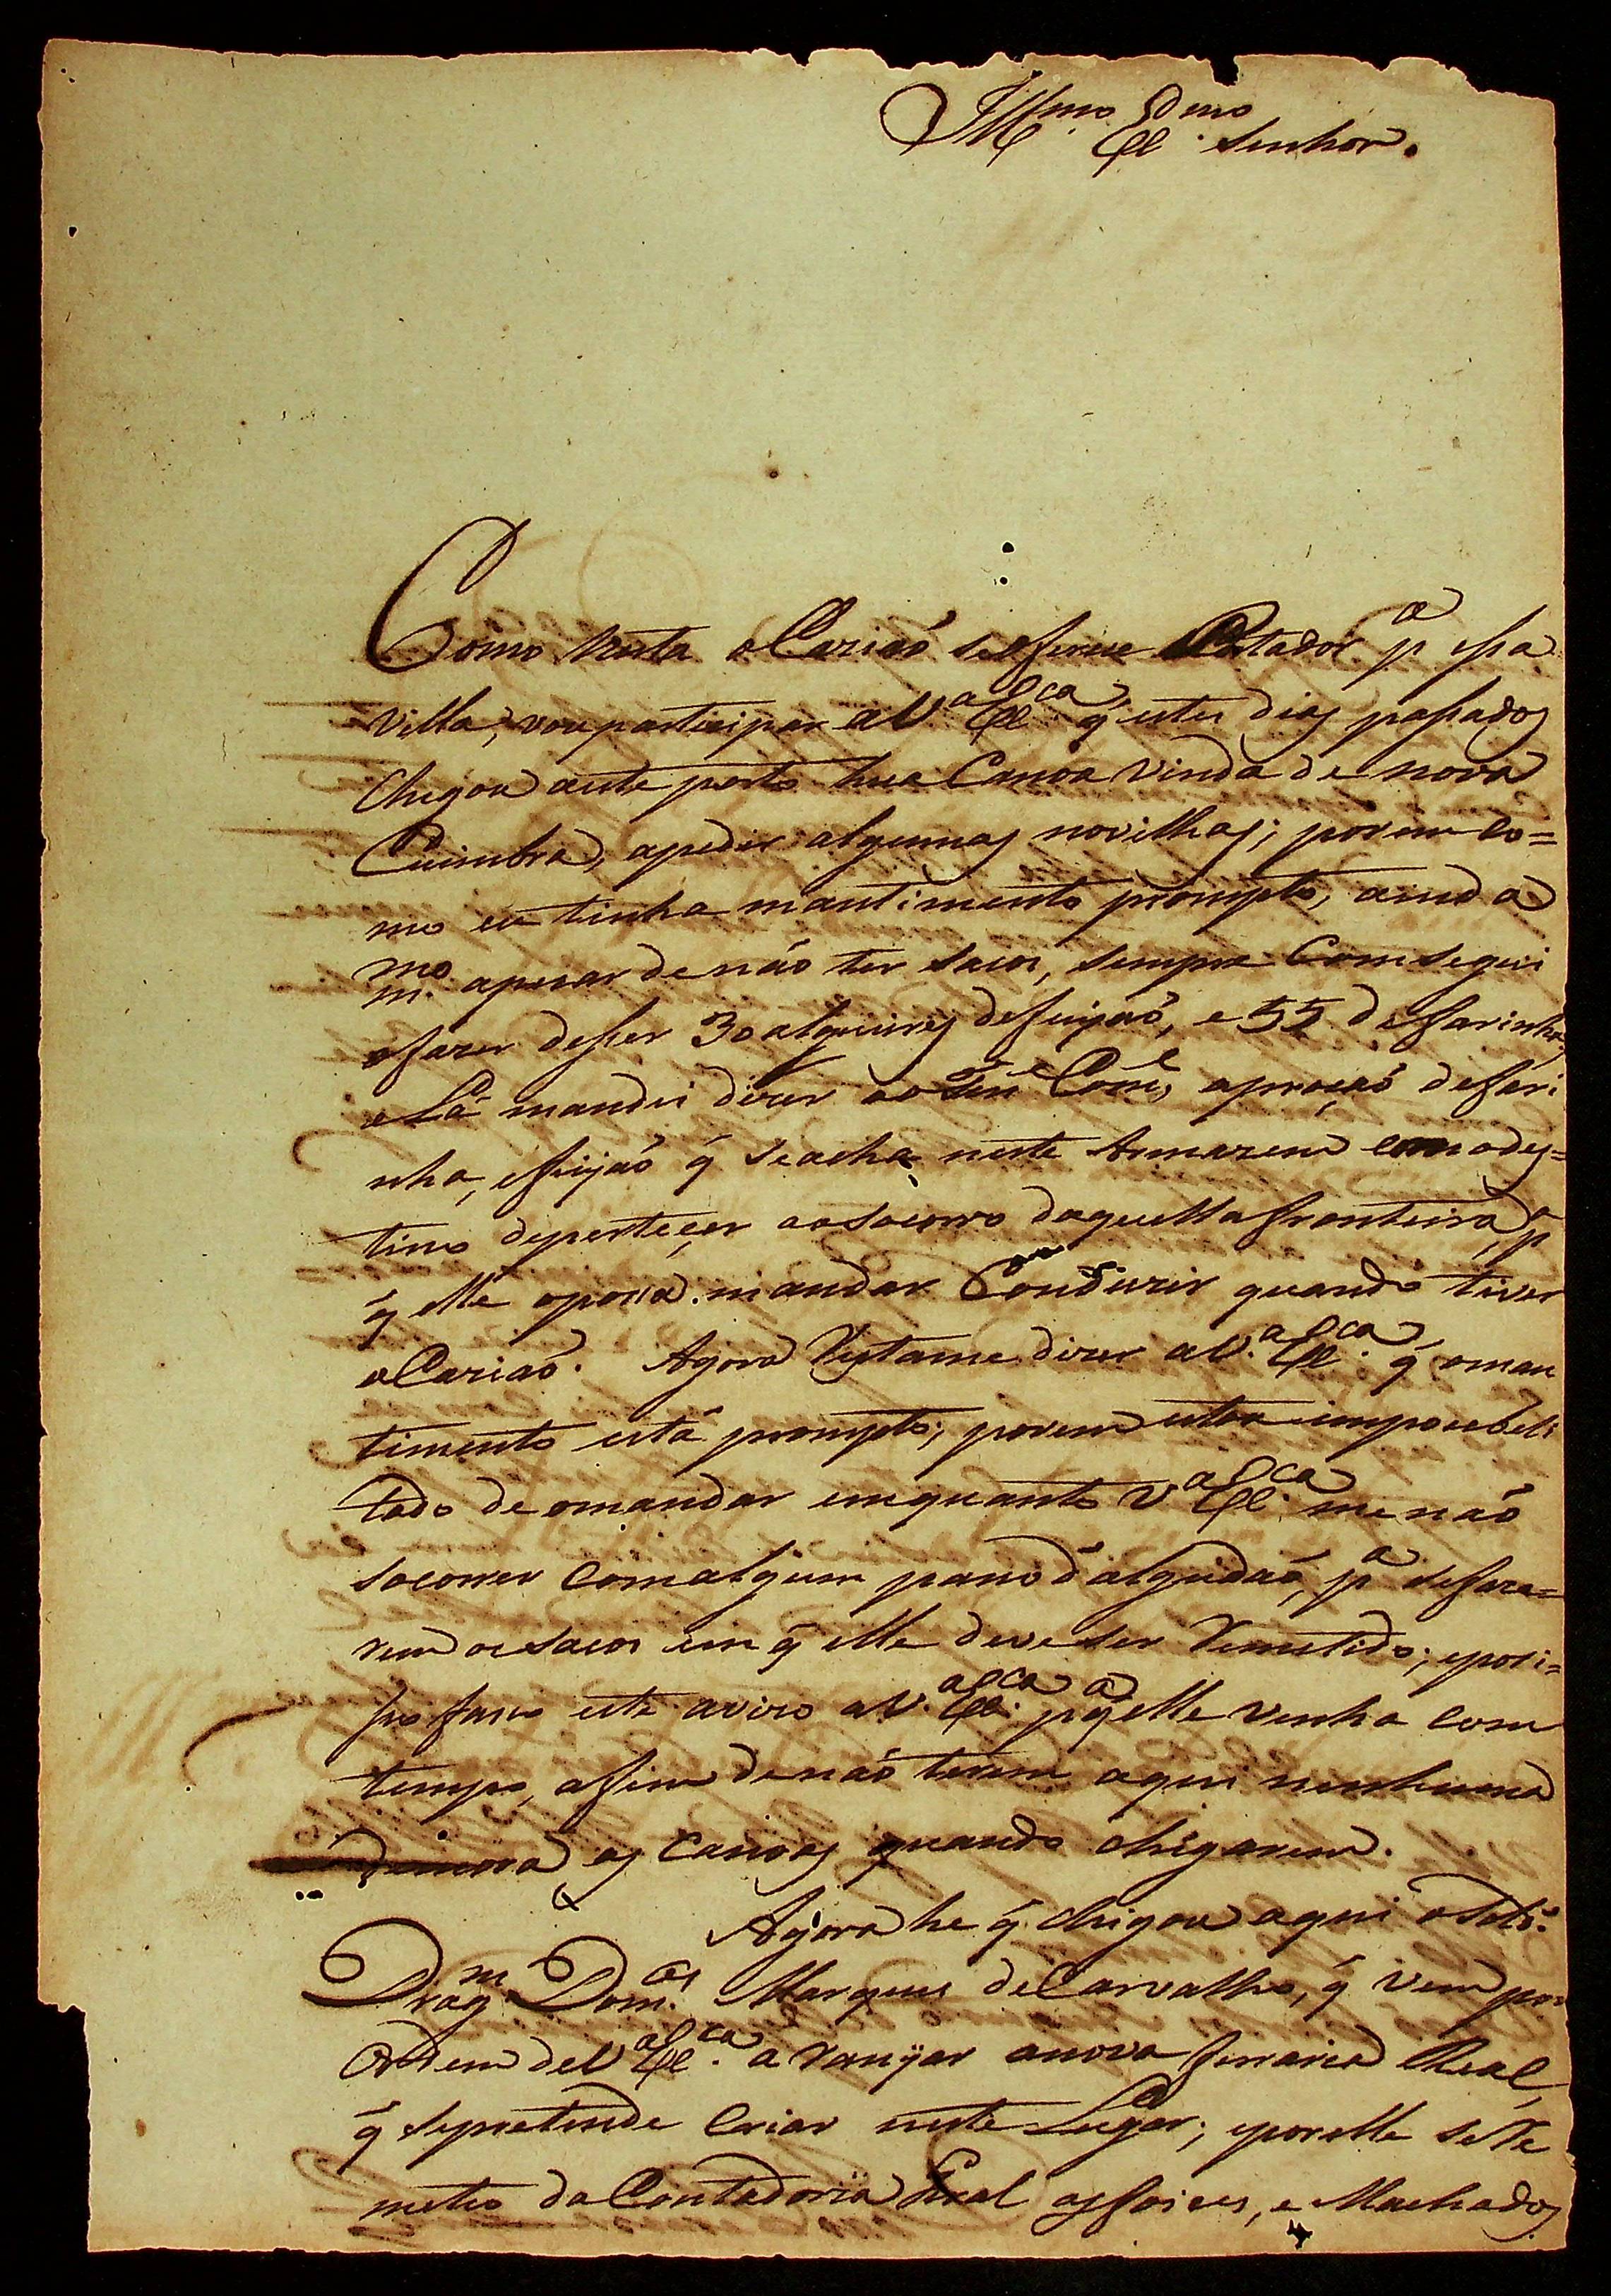 Ill.mo Ex.mo Senhor.
Como nesta oCaziaó seofrece Portador p.a essa
Villa, vou participar aV.a Ex.ca q̃ estes dias passados
chegou aeste porto hua Canoa vinda de nova
Coimbra, apedir algumas novilhas; porem co=
mo eu tinha mantimento prompto, ainda
m.mo apezar denão ter sacos, sempre Comsegui
ofazer desser 30 alqueires defeijaó, e 55 defarinha,
e Lá mandei dizer ao Ten.e Com.e aporçaó defari
nha, efeijaó q̃ seacha neste Armazem comodes=
tino depertencer aoSocorro daquella fronteira, p.a
q̃ elle opossa mandar Conduzir quando tiver
oCaziaó. Agora Restame dizer aV.a Ex.ca q̃ oman
timento está prompto; porem estou impossebeli
tado deomandar emquanto V.a Ex.ca me naó
socorrer comalgum pano d'algudaó, p.a sefaze=
rem os sacos em q̃ elle deve ser Remetido; eporî=
sso faço este avizo aV.a Ex.ca p.a q̃ elle venha com
tempo, afim denaó terem aqui nenhuma
demora as canoas quando chegarem.
Agora he q̃ chegou aqui oSold.o
Drag.m Dom.os Marques deCarvalho, q̃ vem por
Ordem deV.a Ex.ca a ranjar anova ferraria Real,
q̃ sepretende criar neste Lugar; eporelle seRe
meteo daContadoria Geral asfoices, e Machados